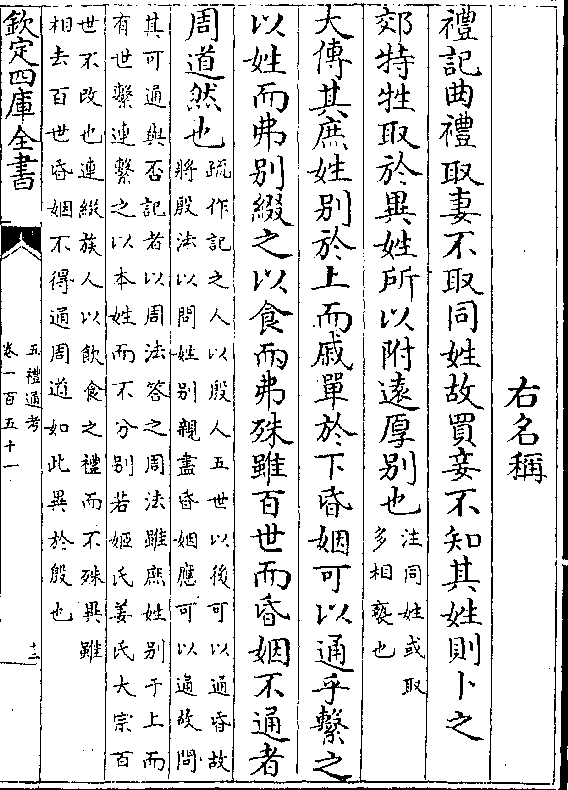 右名稱
禮記曲禮取妻不取同姓故買妾不知其姓則卜之
郊特牲取於異姓所以附遠厚别也
注同姓或取
多相褻也
大傳其庶姓别於上而戚單於下昏姻可以通乎繫之
以姓而弗别綴之以食而弗殊雖百世而昏姻不通者
周道然也
疏作記之人以殷人五世以後可以通昏故
將殷法以問姓别親盡昏姻應可以通故問
其可通與否記者以周法答之周法雖庶姓别于上而
有世繫連繫之以本姓而不分别若姬氏姜氏大宗百
世不改也連綴族人以飲食之禮而不殊異雖
相去百世昏姻不得通周道如此異於殷也
欽定四庫全書
五禮通考
卷一百五十一
十三